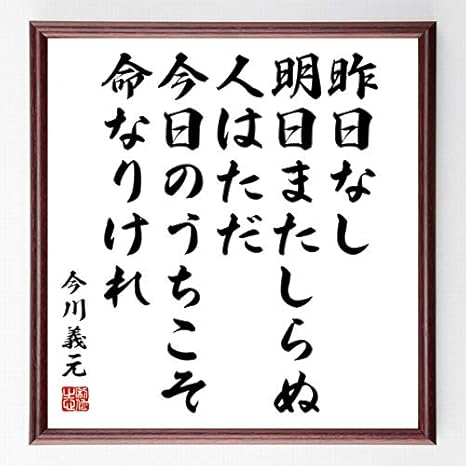 昨日なし
明日またしらぬ
人はただ
今日のうちこそ
命なりけれ
今川義元